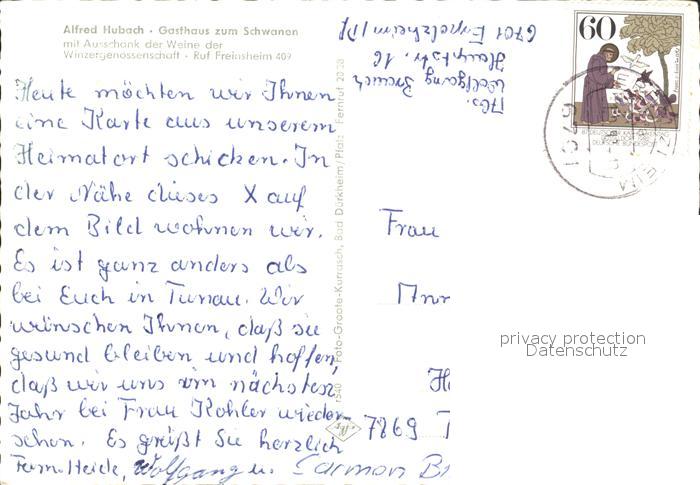 Alfred Hubach · Gasthaus zum Schwanen
mit Ausschank der Weine der
Winzergenossenschaft · Ruf Freinsheim 409
Heute möchten wir Ihnen
eine Karte aus unserem
Heimatort schicken. In
der Nähe dieses X auf
dem Bild wohnen wir.
Es ist ganz anders als
bei Euch in Tunau. Wir
wünschen Ihnen, daß sie
gesund bleiben und hoffen,
daß wir uns im nächsten
Jahr bei Frau Kohler wieder
sehen. Es grüßt Sie herzlich
Fam. Heide, Wolfgang u. Carmen
Foto-Groate-Kurrasch, Bad Dürkheim/Pfalz Fernruf 2028
Abs.
Wolfgang
Hauptstr. 16
6701 Erpolzheim/Pf
60
6701
Frau
7869 T
privacy protection
Datenschutz